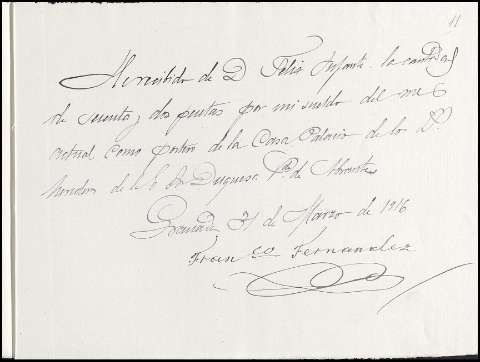 11
He recibido de D. Felix Infante la cantidad
de sesenta y dos pesetas por mi sueldo del mes
actual como portero de la Casa Palacio de los Sres
herederos de la E. Sra Duquesa Vda de Abrantes
Granada 31 de Marzo de 1916
Franco Fernandez